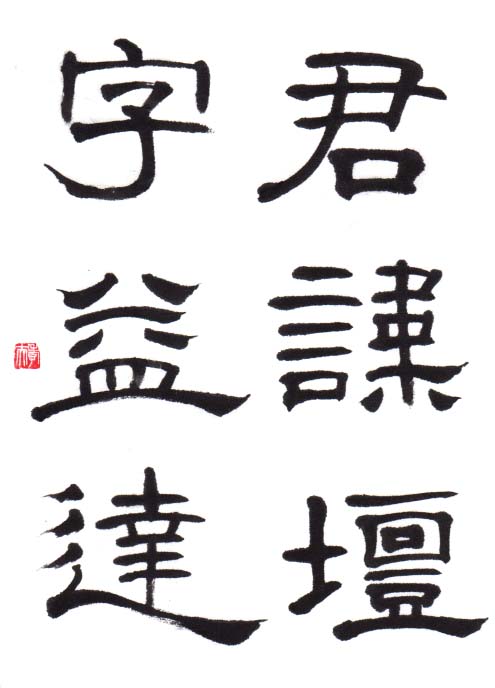 君諱壇
字益達